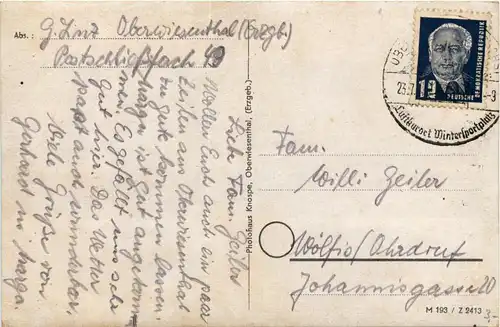 Abs.: G. Linz Oberwiesenthal (Erzgb.)
Postschließfach 19
Liebe Fam. Zeiler
Wollen Euch auch ein paar
Zeilen aus Oberwiesenthal
zu gute kommen lassen.
Marga ist gut angekom
men. Es gefällt uns sehr
gut hier. Das Wetter
passt auch wunderbar.
Viele Grüße von
Gerhard u. Marga.
Photohaus Knospe, Oberwiesenthal, (Erzgeb.)
DEUTSCHE
DEMOKRATISCHE REPUBLIK
12
Luftkurort Wintersportplatz
Fam.
Willi Zeiler
Wölfis/Ohrdruf
Johannsgasse 11
M 193 / Z 2413
3.-